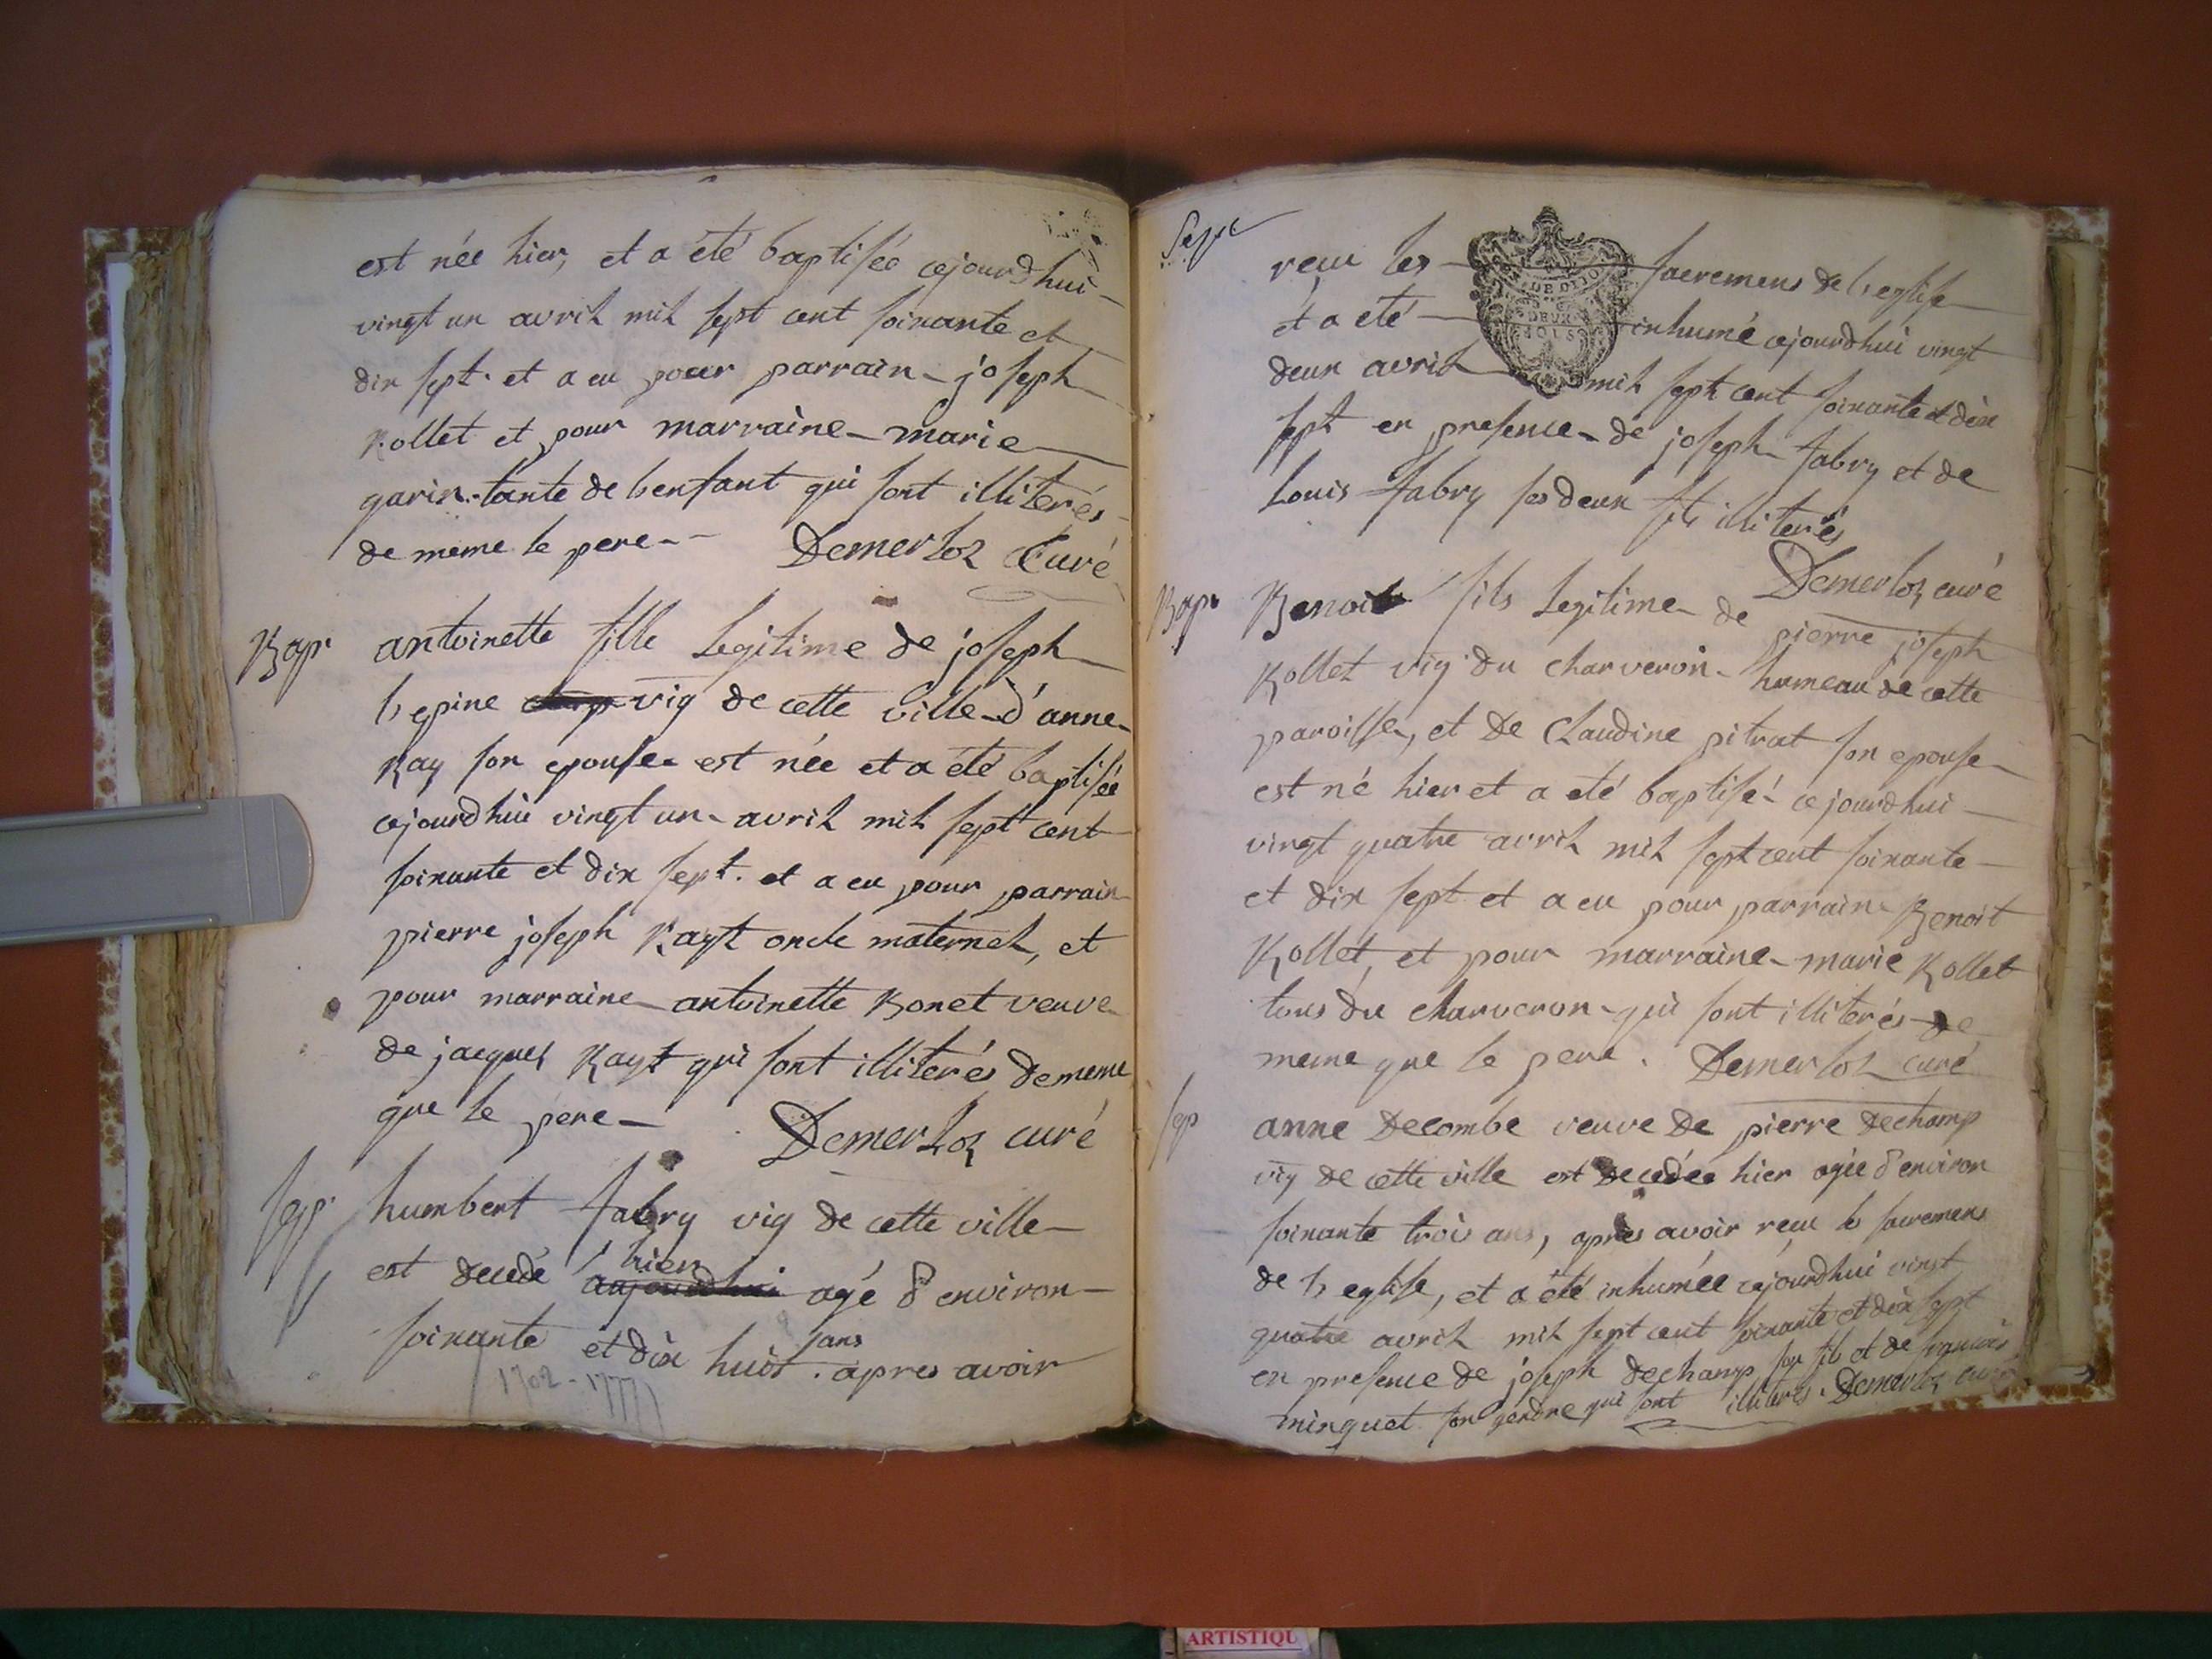 est née hier, et a été baptisée cejourdhui
vingt un avril mil sept cent soixante et
dix sept. et a eu pour parrain joseph
Rollet et pour marraine marie
garin tante de lenfant qui sont illiterés
de meme le pere Demerloz Curé
Bap antoinette fille legitime de joseph
lepine vig de cette ville d'anne
Ray son epouse est née et a été baptisée
cejourdhui vingt un avril mil sept cent
soixante et dix sept. et a eu pour parrain
pierre joseph Rayt oncle maternel, et
pour marraine antoinette Bonet veuve
de jacques Rayt qui sont illiterés de meme
que le pere Demerloz curé
sep humbert fabry vig de cette ville
hier
est decedé aujourdhui agé d'environ
ans
soixante et dix huit. apres avoir
1702-1777
Sepe
reçu les sacremens de l'eglise
DE DIJO
DEUX
SOLS
et a eté inhumé cejourdhui vingt
deux avril mil sept cent soixante et dix
sept en presence de joseph fabry et de
Louis fabry ses deux fils illiterés
Demerloz curé
Bap Benoit fils legitime de pierre joseph
Rollet vig du charveron hameau de cette
paroisse, et de Claudine pitrat son epouse
est né hier et a eté baptisé cejourdhui
vingt quatre avril mil sept cent soixante
et dix sept et a eu pour parrain Benoit
Rollet, et pour marraine marie Rollet
tous du charveron qui sont illiterés de
meme que le pere. Demerloz curé
sep anne Decombe veuve de pierre dechamp
vig de cette ville est decedée hier agée d'environ
soixante trois ans, apres avoir recu les sacremens
de l'eglise, et a été inhumée cejourdhui vingt
quatre avril mil sept cent soixante et dix sept
en presence de joseph dechamp son fils et de francois
minguet son gendre qui sont illiterés. Demerloz curé
ARTISTIQU